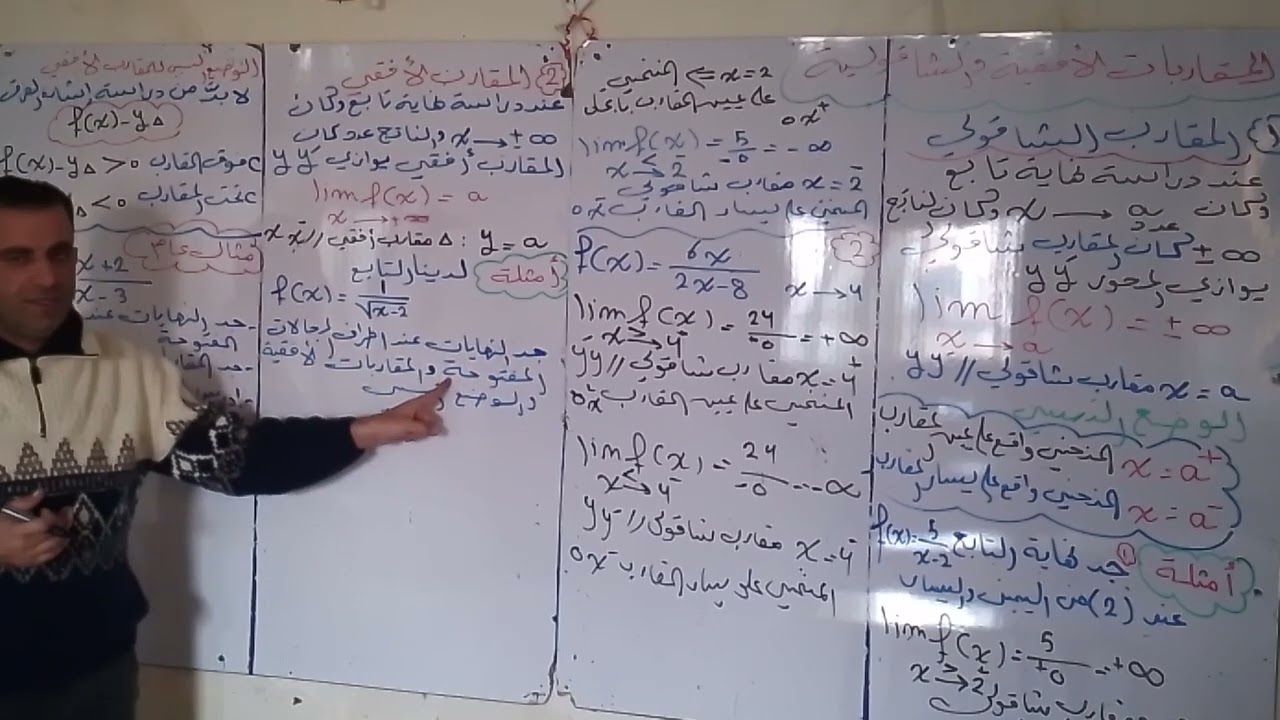 المقاربات الأفقية والشاقولية
1} المقارب الشاقولي
عند دراسة نهاية تابع
وكان x → a عدد وكان لتابع
±∞ كان لمقارب شاقولي
يوازي لمحور yy'
lim f(x) = ±∞
x → a
x = a مقارب شاقولي // yy'
الوضع النسبي
x = a⁺ المنحني واقع على يمين لمقارب
x = a⁻ المنحني واقع على يسار لمقارب
أمثلة
① جد نهاية التابع f(x) = 5/(x-2)
عند (2) من اليمين واليسار
lim f(x) = 5/+0 = +∞
x >→ 2⁺
مقارب شاقولي
x = 2 ⇐ المنحني
على يمين المقارب
lim f(x) = 5/-0 = -∞
x <→ 2⁻
x = 2 مقارب شاقولي
المنحني على يسار المقارب
2
f(x) = 6x/(2x-8) x → 4
lim f(x) = 24/+0 = +∞
x >→ 4
x = 4⁺ مقارب شاقولي // yy'
المنحني على يمين المقارب
lim f(x) = 24/-0 = -∞
x <→ 4⁻
x = 4⁻ مقارب شاقولي // yy'
المنحني على يسار المقارب
2} المقارب الأفقي
عند دراسة نهاية تابع وكان
x → ±∞ والناتج عدد كان
المقارب أفقي يوازي
lim f(x) = a
x → ±∞
y = a : Δ مقارب أفقي // xx'
أمثلة
لدينا التابع
f(x) = 1/√(x-2)
جد النهايات عند اطراف لمجالات
المفتوحة والمقاربات الأفقية
والوضع
لا بد من دراسة إشارة الفرق
f(x) - yΔ
f(x) - yΔ > 0 فوق المقارب C
Δ < 0 تحت المقارب C
مثال عام
x+2
x-3
-جد النهايات عند
المفتوحة
-جد